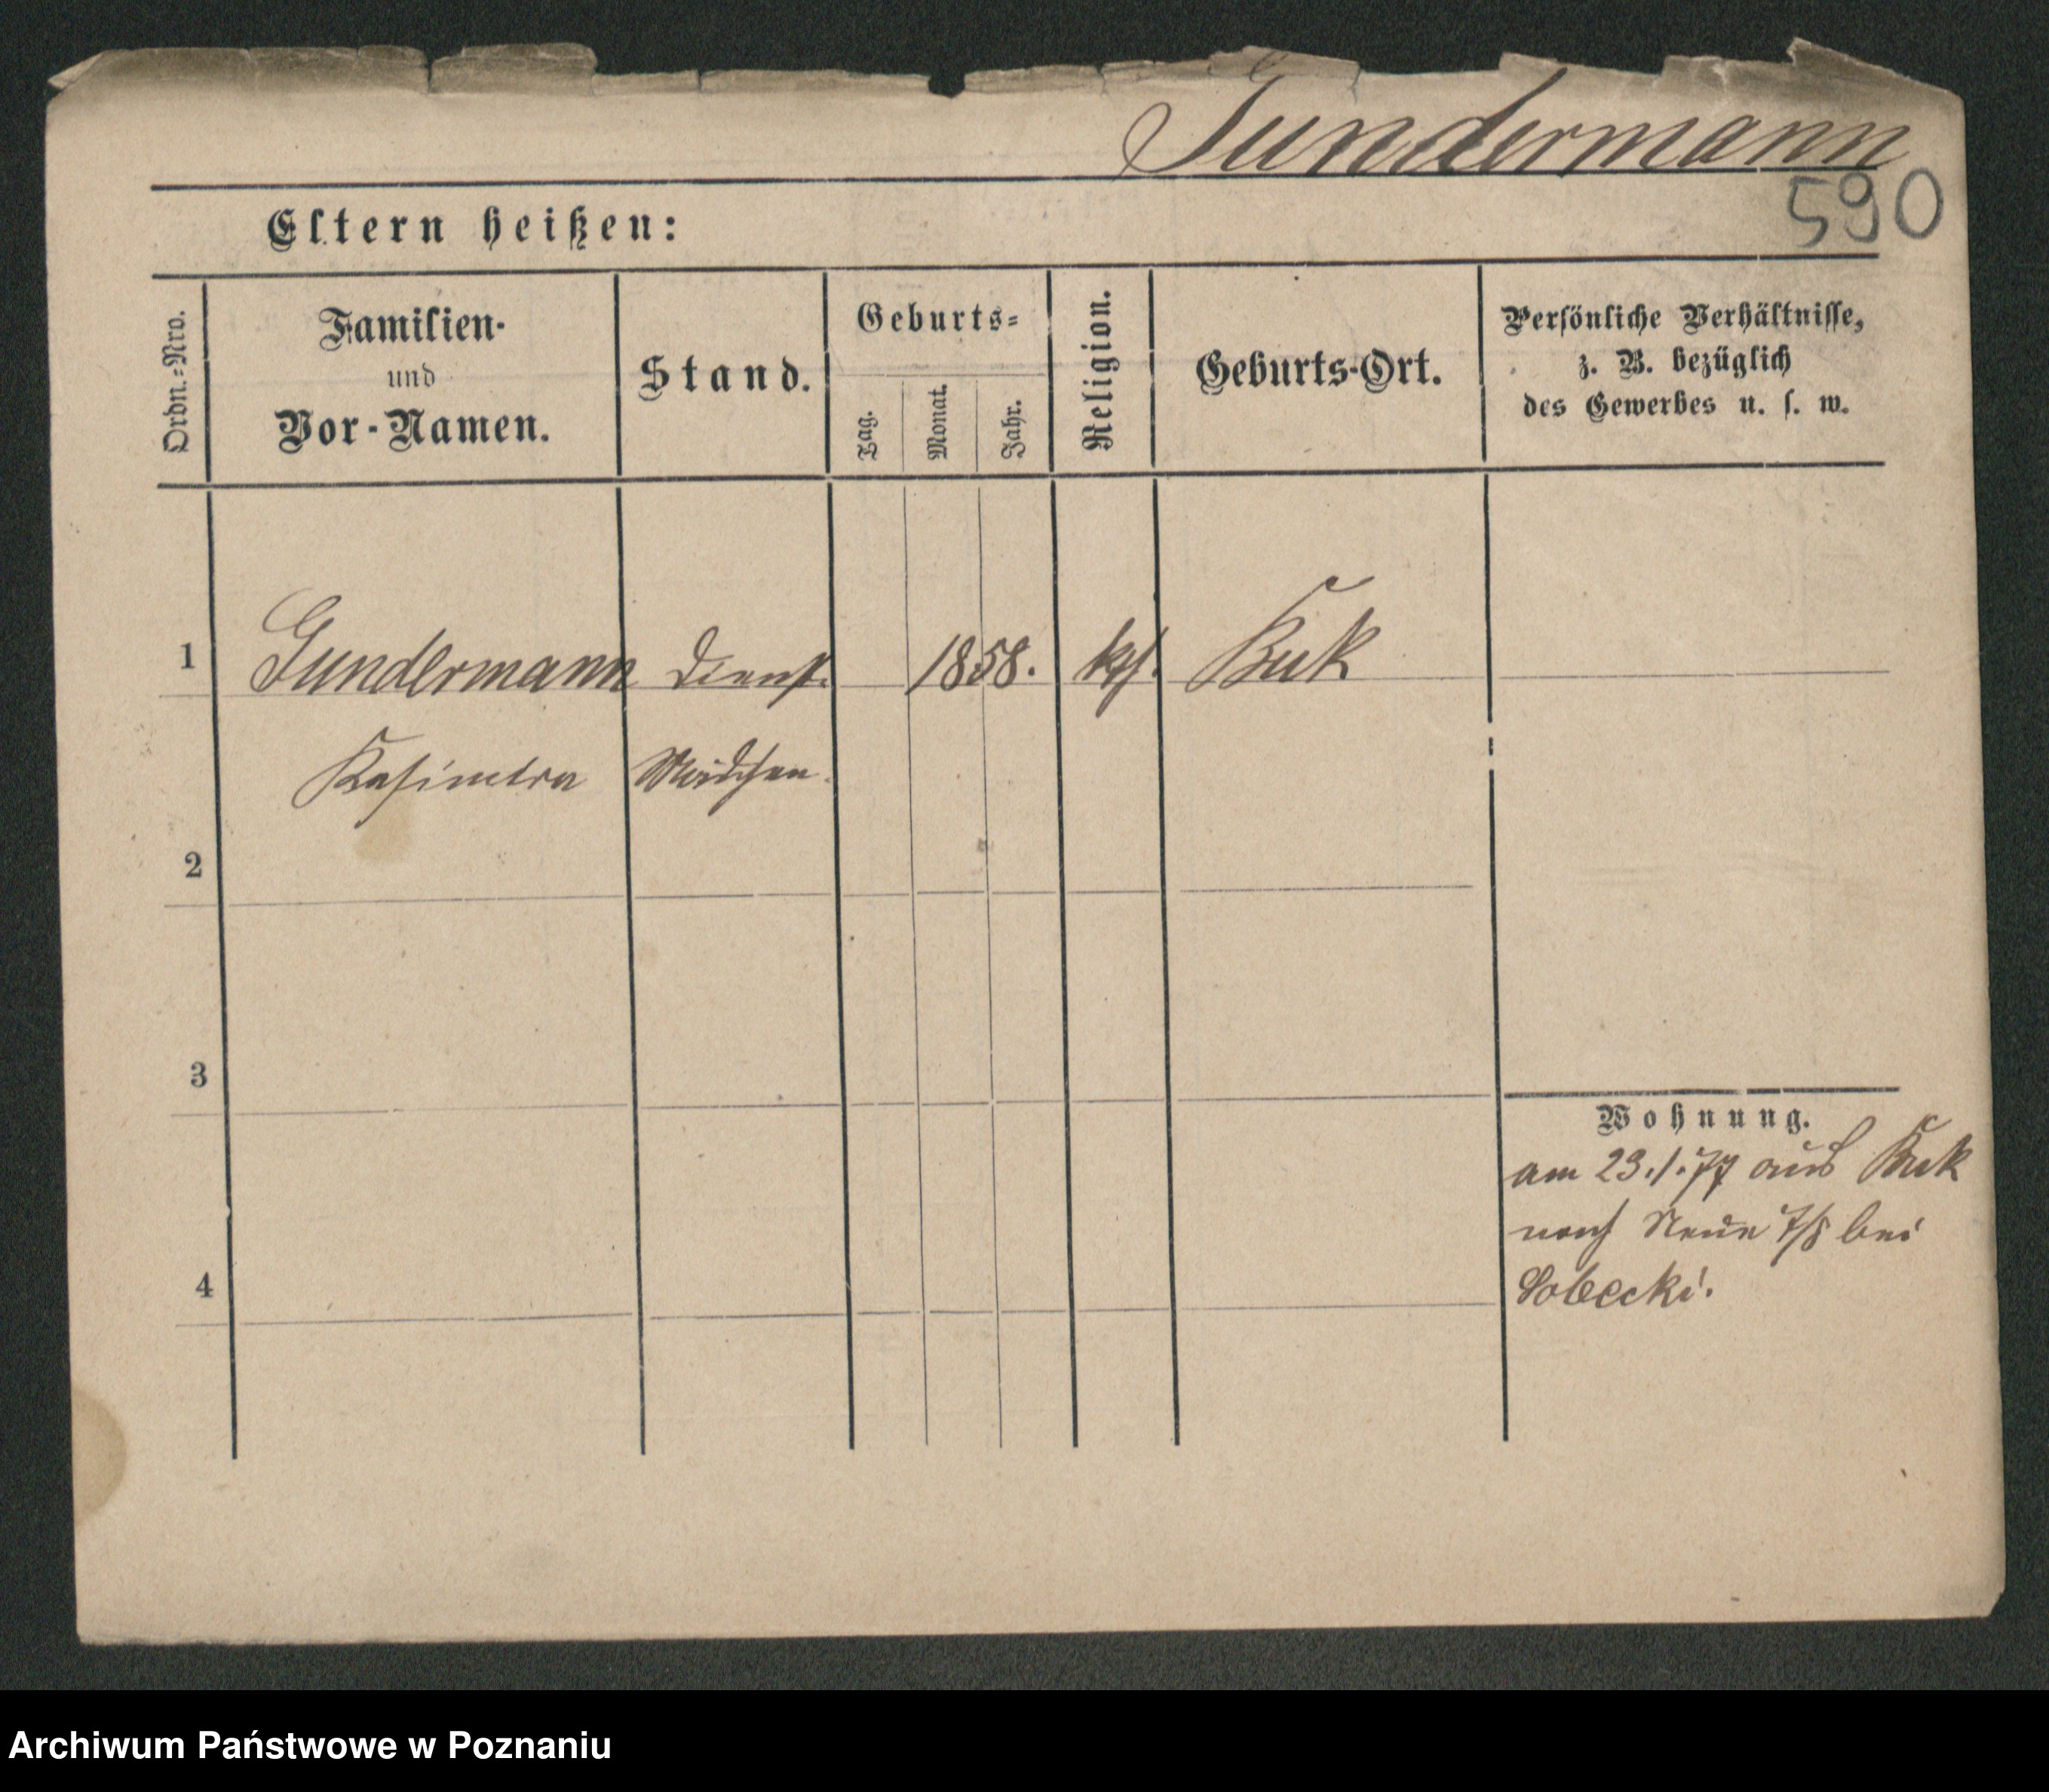 Gundermann
590
Eltern heißen:
Ordn.-Nro.
Familien-
und
Vor-Namen.
Stand.
Geburts-
Tag.
Monat.
Jahr.
Religion.
Geburts-Ort.
Persönliche Verhältnisse,
z. B. bezüglich
des Gewerbes u. s. w.
1 Gundermann Dienst. 1858. kth. Buk
Kasimira Mädchen.
2
3
4
Wohnung.
am 23.1.77 aus Buk
nach Neue 7/8 bei
Sobecki.
Archiwum Państwowe w Poznaniu